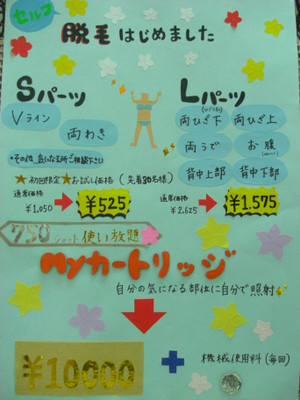 セルフ
脱毛はじめました
Sパーツ
Vライン
両わき
*その他、気になる箇所ご相談下さい
Lパーツ
両ひざ下
両ひざ上
両うで
お腹
背中上部
背中下部
★初回限定★お試し価格（先着30名様）
通常価格
¥1,050
¥525
通常価格
¥2,625
¥1,575
750ショット使い放題
Myカートリッジ
自分の気になる部位に自分で照射
¥10000
+
機械使用料（毎回）